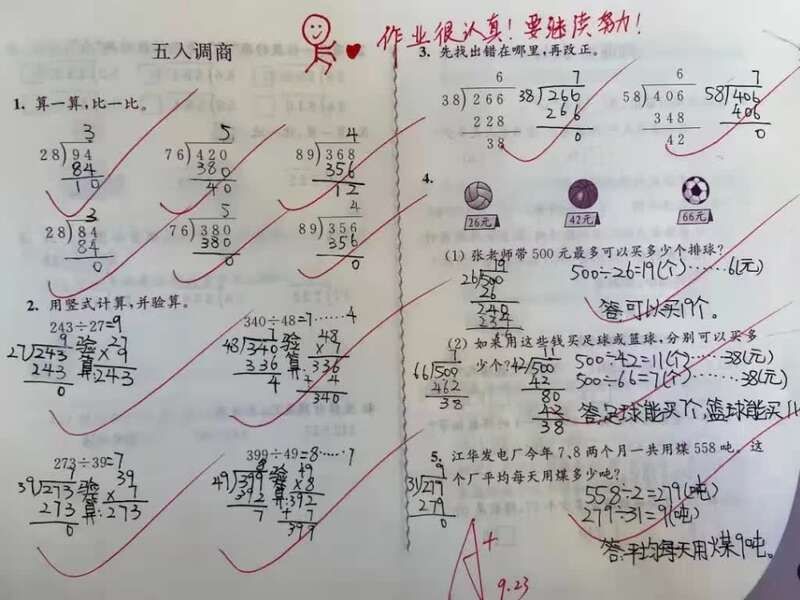 五入调商
作业很认真！要继续努力！
1. 算一算，比一比。
3
28)94
84
10
5
76)420
380
40
4
89)368
356
12
3
28)84
84
0
5
76)380
380
0
4
89)356
356
0
2. 用竖式计算，并验算。
243÷27=9
9
27)243
243
0
验算:
27
×9
243
340÷48=7……4
7
48)340
336
4
验算:
48
×7
336
+4
340
273÷39=7
7
39)273
273
0
验算:
39
×7
273
399÷49=8……7
8
49)399
392
7
验算:
49
×8
392
+7
399
3. 先找出错在哪里，再改正。
6
38)266
228
38
7
38)266
266
0
6
58)406
348
42
7
58)406
406
0
4.
26元
42元
66元
(1) 张老师带 500 元最多可以买多少个排球？
19
26)500
26
240
234
6
500÷26=19(个)……6(元)
答:可以买19个。
(2) 如果用这些钱买足球或篮球，分别可以买多
少个？
7
66)500
462
38
11
42)500
42
80
42
38
500÷42=11(个)……38(元)
500÷66=7(个)……38(元)
答:足球能买7个,篮球能买11
5. 江华发电厂今年 7、8 两个月一共用煤 558 吨。这
个厂平均每天用煤多少吨？
9
31)279
279
0
558÷2=279(吨)
279÷31=9(吨)
答:平均每天用煤9吨。
A+
9.23